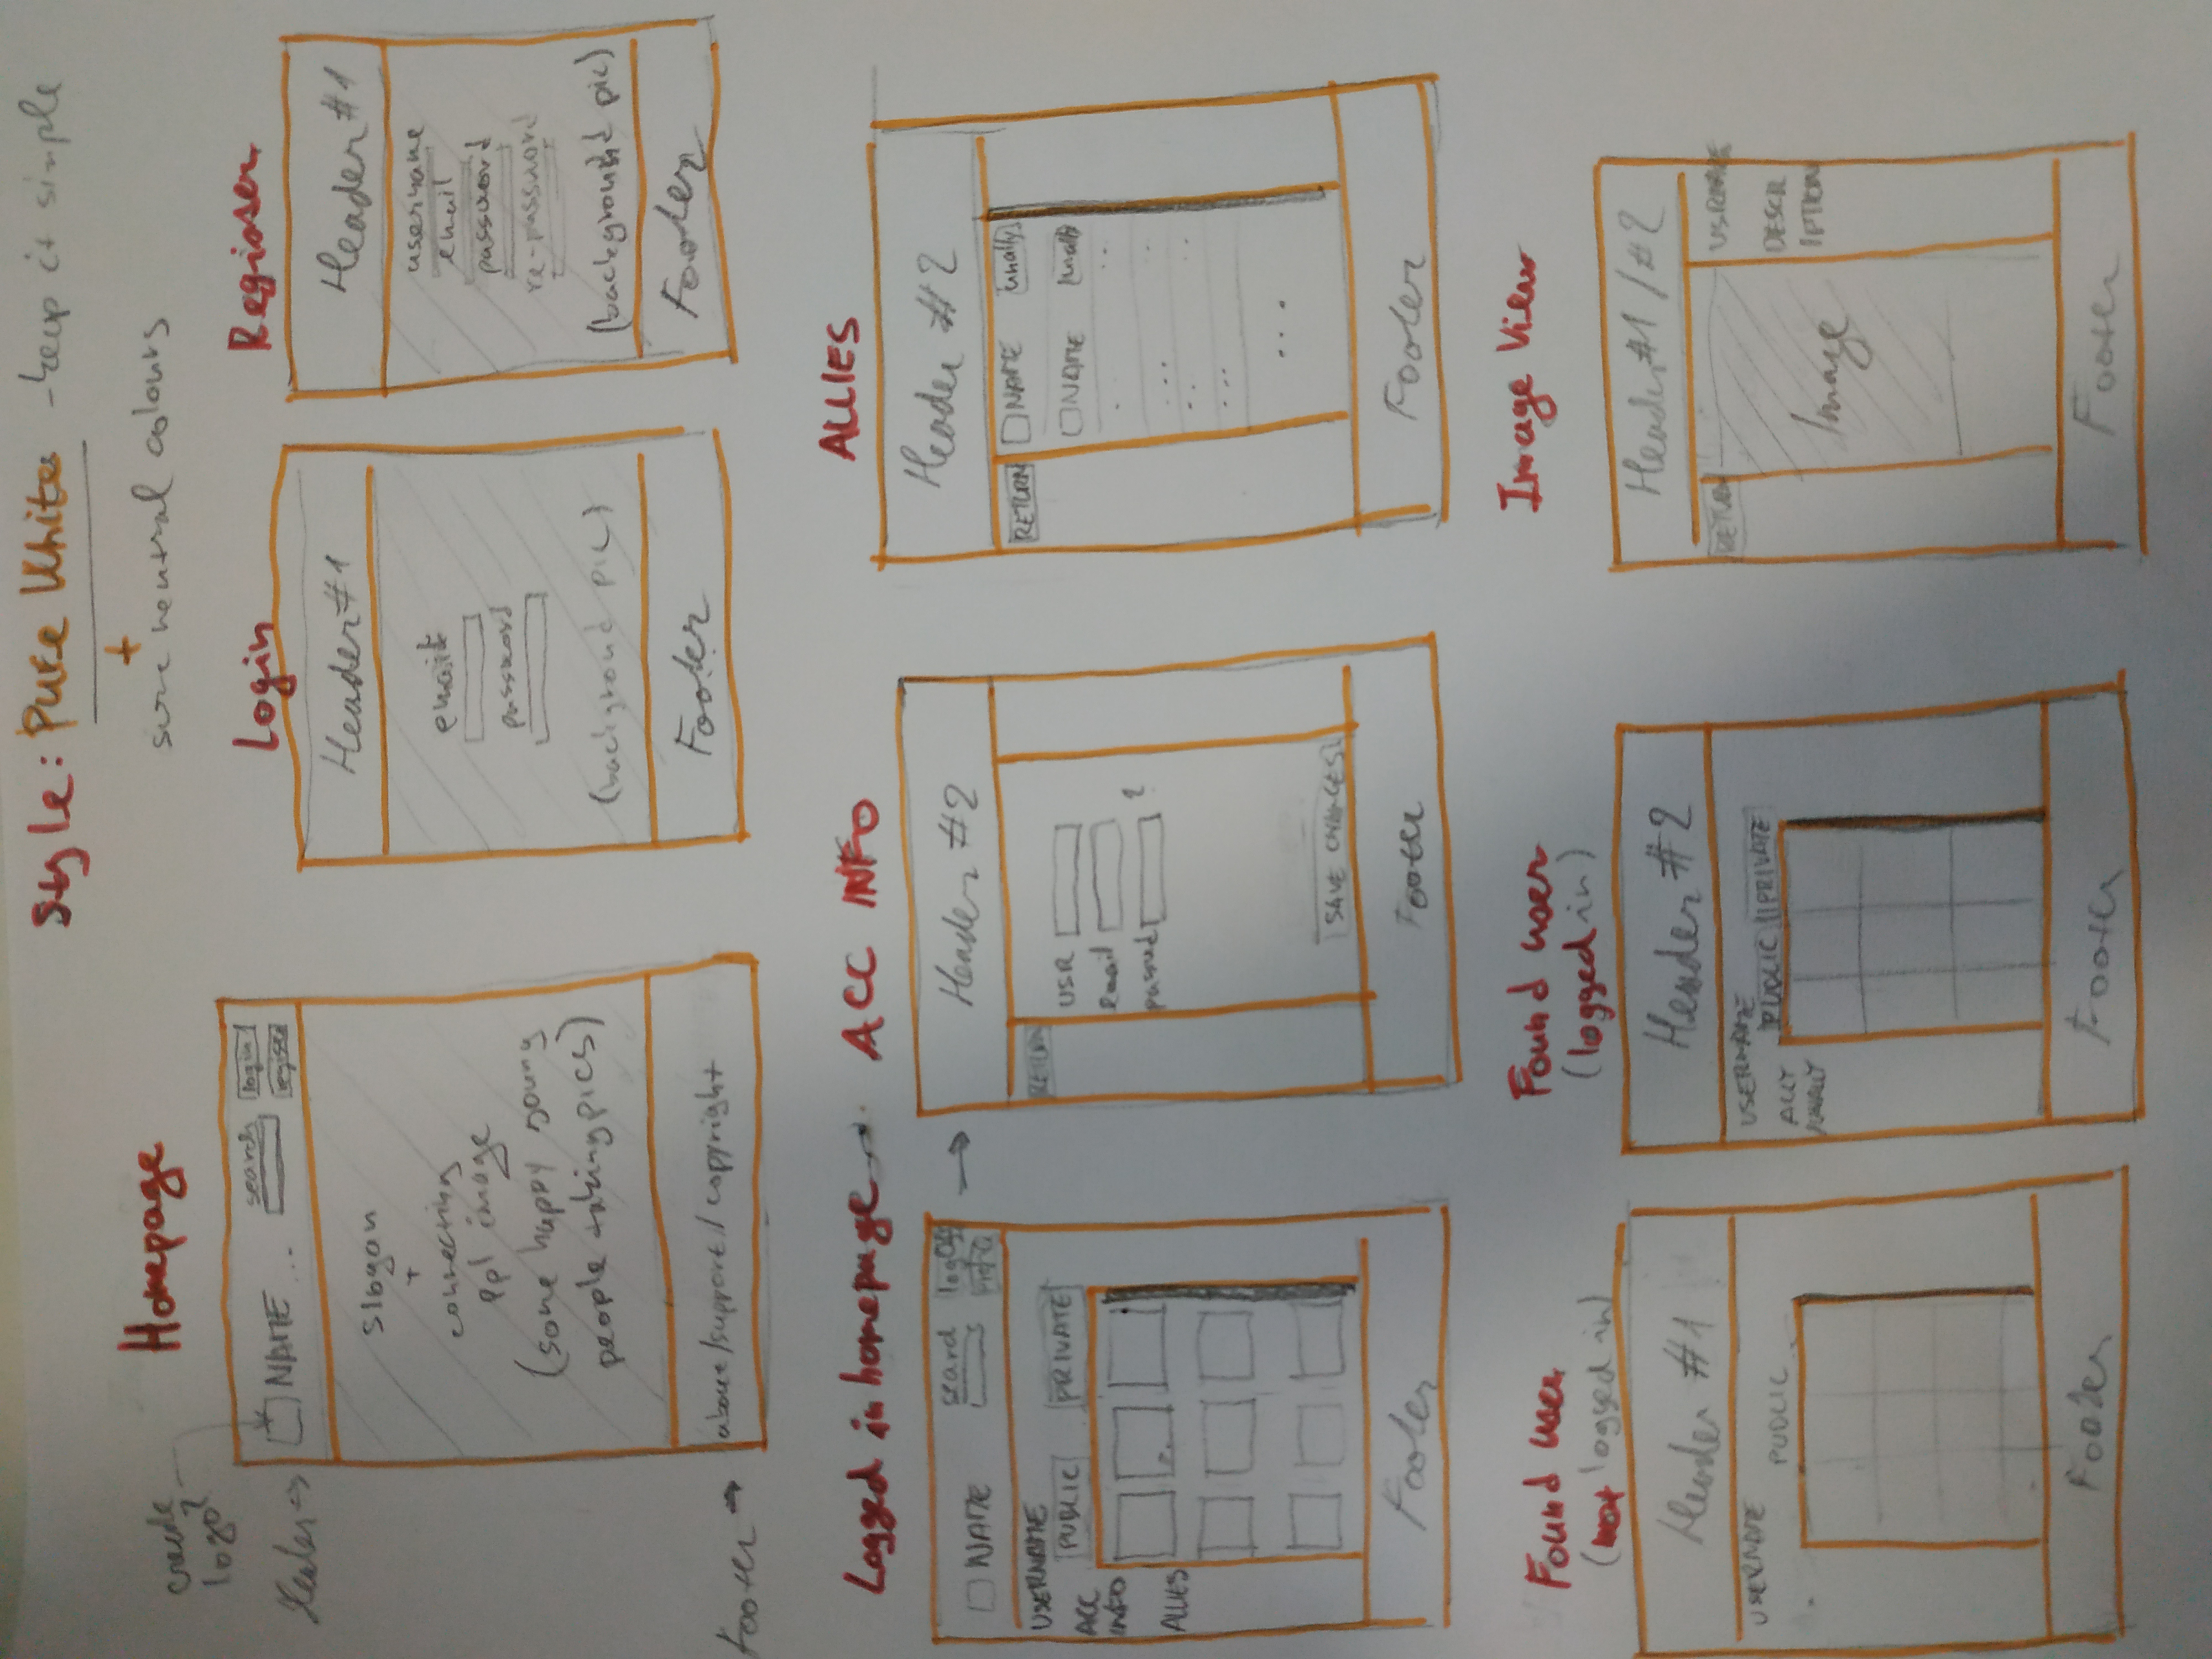 Style: Pure White - keep it simple
+
some neutral colours
Homepage
create
logo?
Header
NAME ...
search
login
register
slogan
+
connecting
ppl image
(some happy young
people taking pics)
Footer
about/support/copyright
Login
Header #1
email
password
(background pic)
Footer
Header #1
username
email
password
re-password
(background pic)
Footer
Logged in homepage
NAME
search
logOff
USERNAME
PUBLIC PRIVATE
ACC
INFO
ALLIES
Footer
ACC INFO
Header #2
RETURN
USR
email
?
SAVE CHANGES
Footer
ALLIES
Header #2
RETURN
NAME unally
NAME unally
...
Footer
Found user
(not logged in)
Header #1
USERNAME
PUBLIC
Footer
Found user
(logged in)
Header #2
USERNAME
PUBLIC PRIVATE
ALLY
/UNALLY
Footer
Image View
Header #1 / #2
RETURN
Image
DESCR
IPTION
Footer